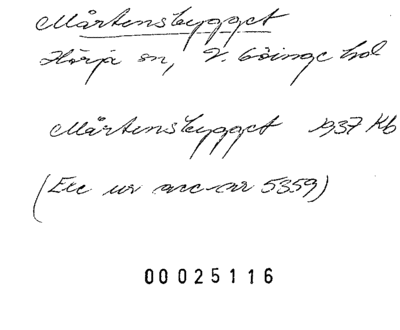 Mårtensbygget
Hörja sn, V. Göinge hd
Mårtensbygget 1937 Kb
(Exc ur acc-nr 5359)
00025116